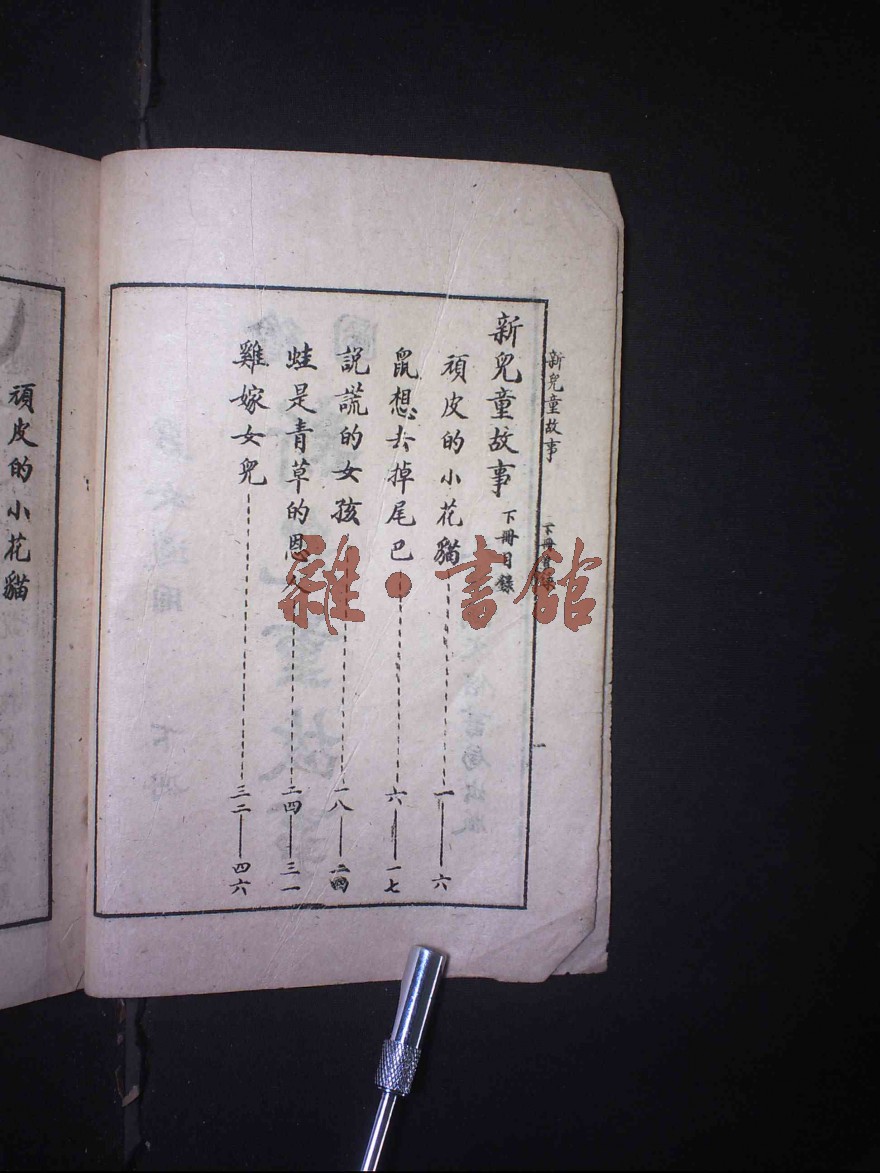 新兒童故事 下冊目錄
新兒童故事 下冊目錄
頑皮的小花貓 一——六
鼠想去掉尾巴 六——一七
說謊的女孩 一八——二四
蛙是青草的恩人 二四——三一
雞嫁女兒 三二——四六
頑皮的小花貓
雜·書館